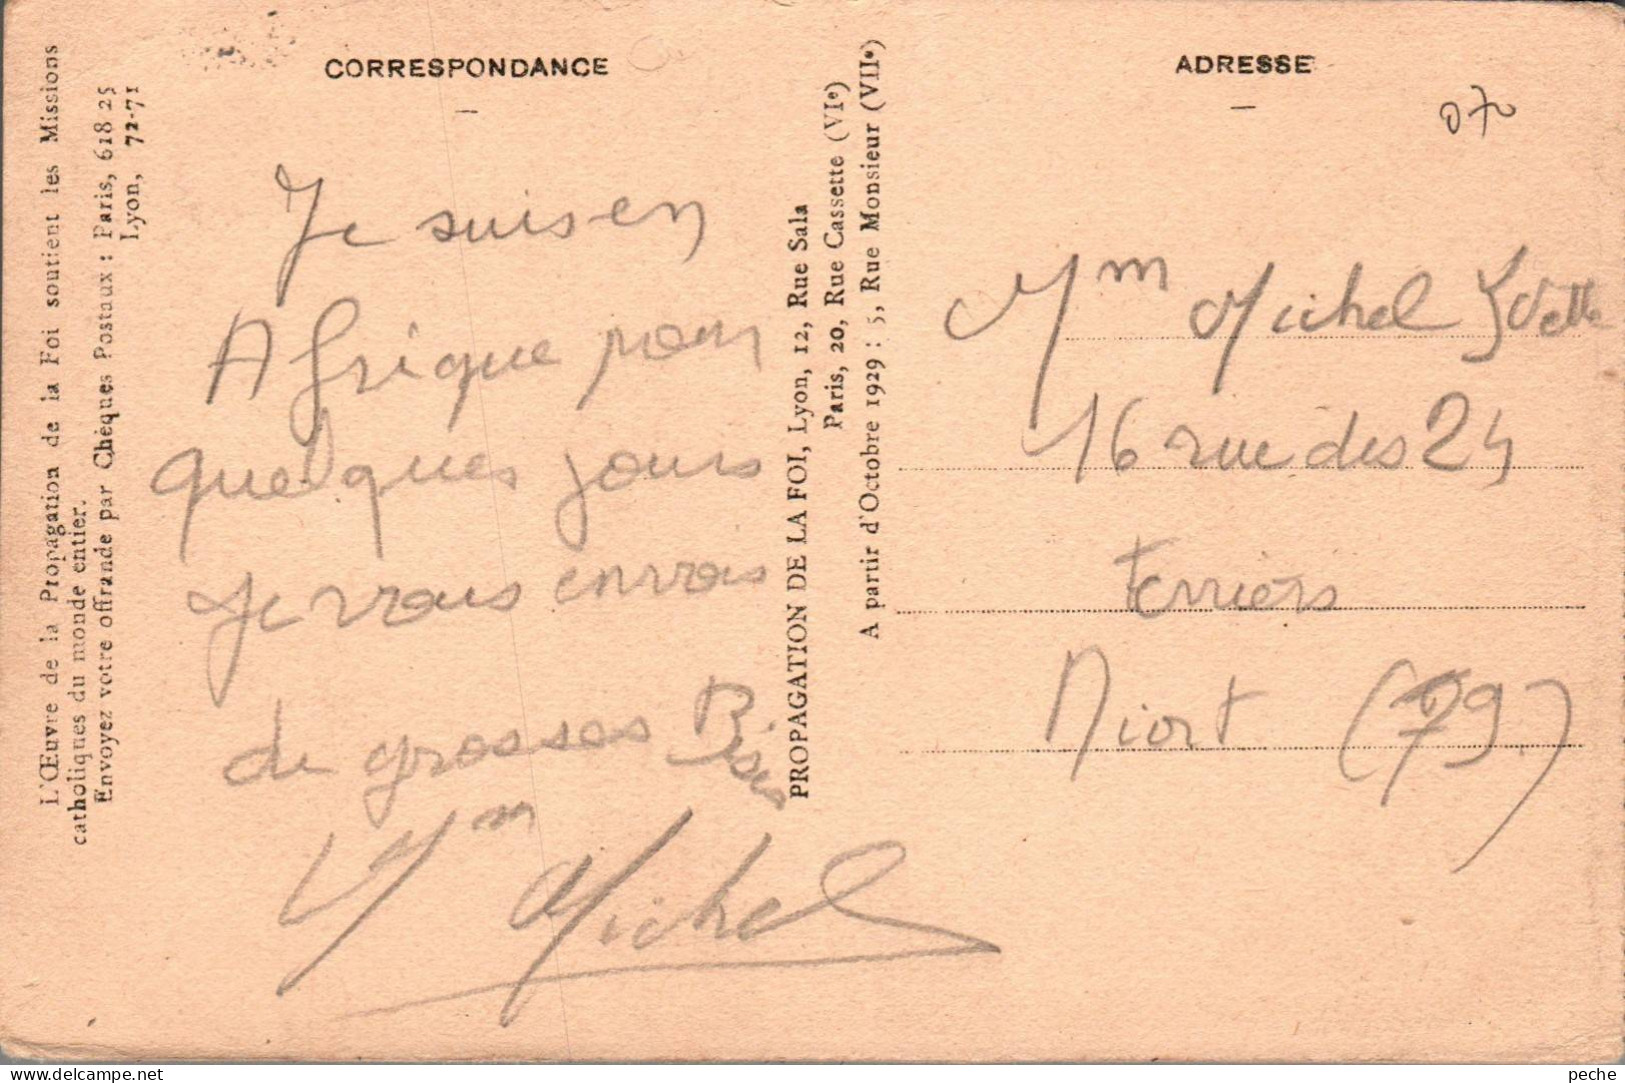 L'Œuvre de la Propagation de la Foi soutient les Missions
catholiques du monde entier.
Envoyez votre offrande par Chèques Postaux : Paris, 618 25
Lyon, 72-71
CORRESPONDANCE
Je suis en
Afrique pour
quelques jours
je vous envois
de grosses Bises
Mm Michel
PROPAGATION DE LA FOI, Lyon, 12, Rue Sala
Paris, 20, Rue Cassette (VIe)
A partir d'Octobre 1929 : 5, Rue Monsieur (VIIe)
ADRESSE
070
Mm Michel Yvette
16 rue des 24
Ferriers
Niort (79)
delcampe.net
peche